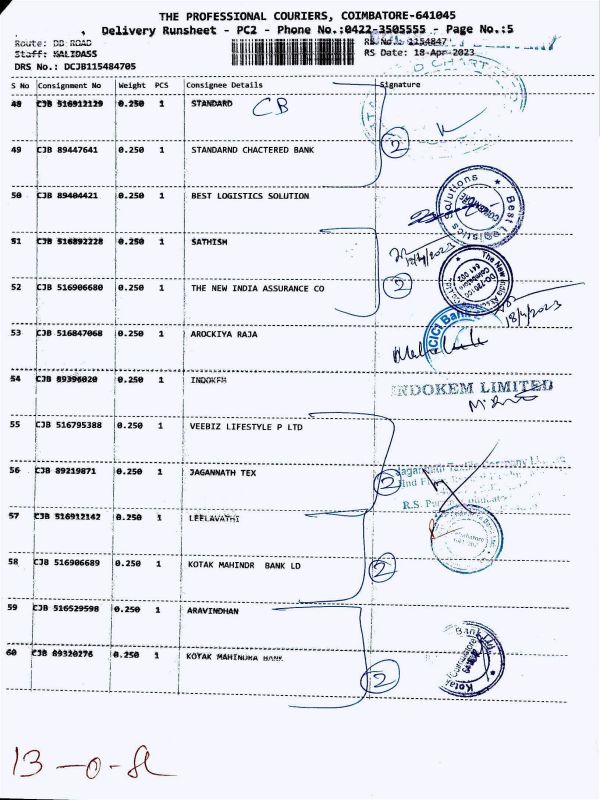 THE PROFESSIONAL COURIERS, COIMBATORE-641045
Delivery Runsheet - PC2 - Phone No.:0422-3505555 - Page No.:5
Route: DD ROAD
RS No.: 1154847
Staff: KALIDASS
RS Date: 18-Apr-2023
DRS No.: DCJB115484705
S No Consignment No Weight PCS Consignee Details Signature
48 CJB 516912129 0.250 1 STANDARD CB
49 CJB 89447641 0.250 1 STANDARND CHACTERED BANK
2
50 CJB 89404421 0.250 1 BEST LOGISTICS SOLUTION
Best Logistics Solutions
51 CJB 516892228 0.250 1 SATHISH
52 CJB 516906680 0.250 1 THE NEW INDIA ASSURANCE CO
2
The New India
Coimbatore
641 002
18/4/2023
53 CJB 516847068 0.250 1 AROCKIYA RAJA
ICICI Bank
54 CJB 89396020 0.250 1 INDOKEM
INDOKEM LIMITED
55 CJB 516795388 0.250 1 VEEBIZ LIFESTYLE P LTD
56 CJB 89219871 0.250 1 JAGANNATH TEX
2
Jagannath Textile Company Limited
R.S.
57 CJB 516912142 0.250 1 LEELAVATHI
58 CJB 516906689 0.250 1 KOTAK MAHINDR BANK LD
2
59 CJB 516529598 0.250 1 ARAVINDHAN
60 CJB 89320276 0.250 1 KOTAK MAHINDRA BANK
2
Kotak
Bank
Coimbatore
13-0-